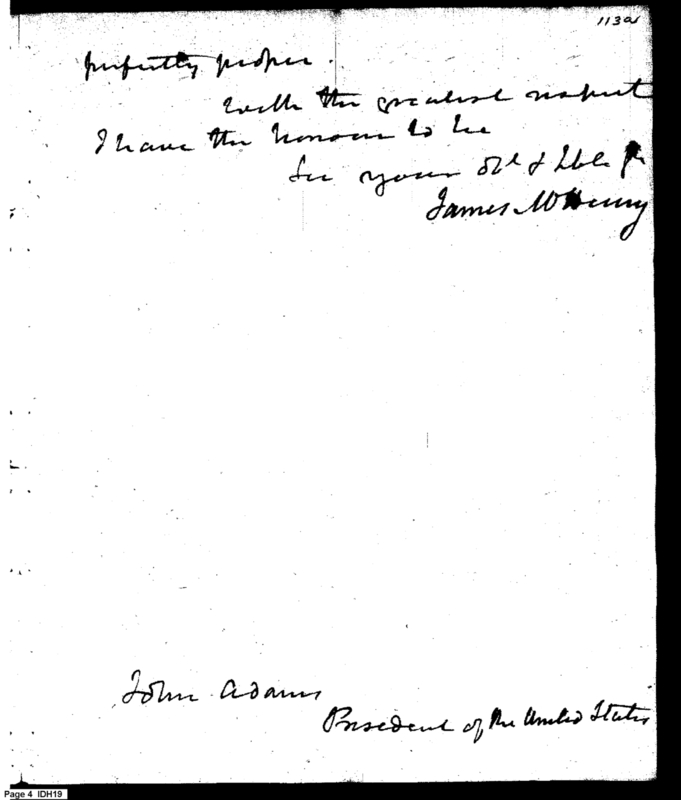 113a
perfectly proper.
With the greatest respect
I have the honour to be
Sir your obt & hble
James McHenry
John Adams
President of the United States
Page 4 IDH19